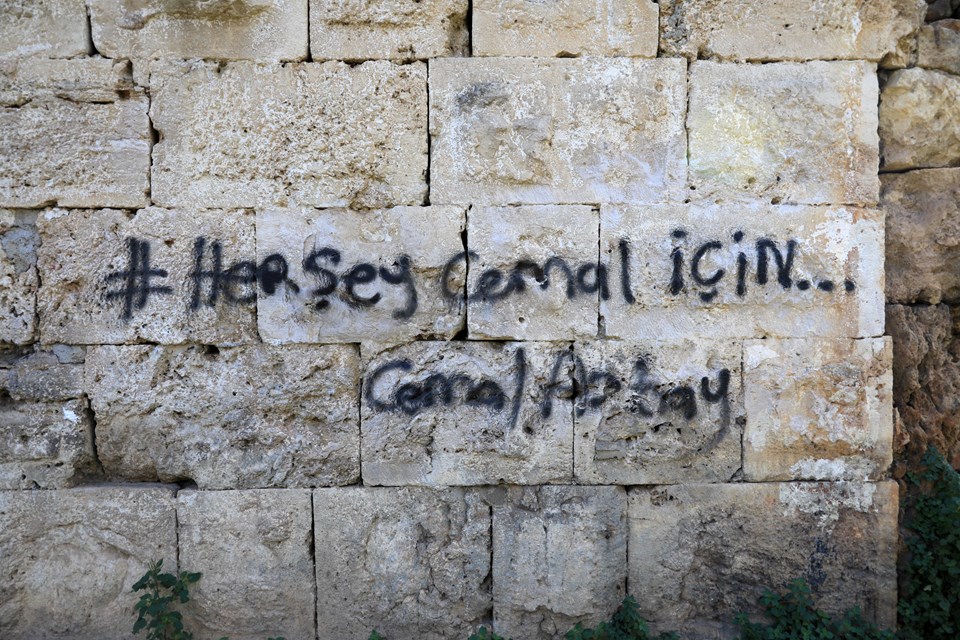 #Herşey Cemal için...
Cemal